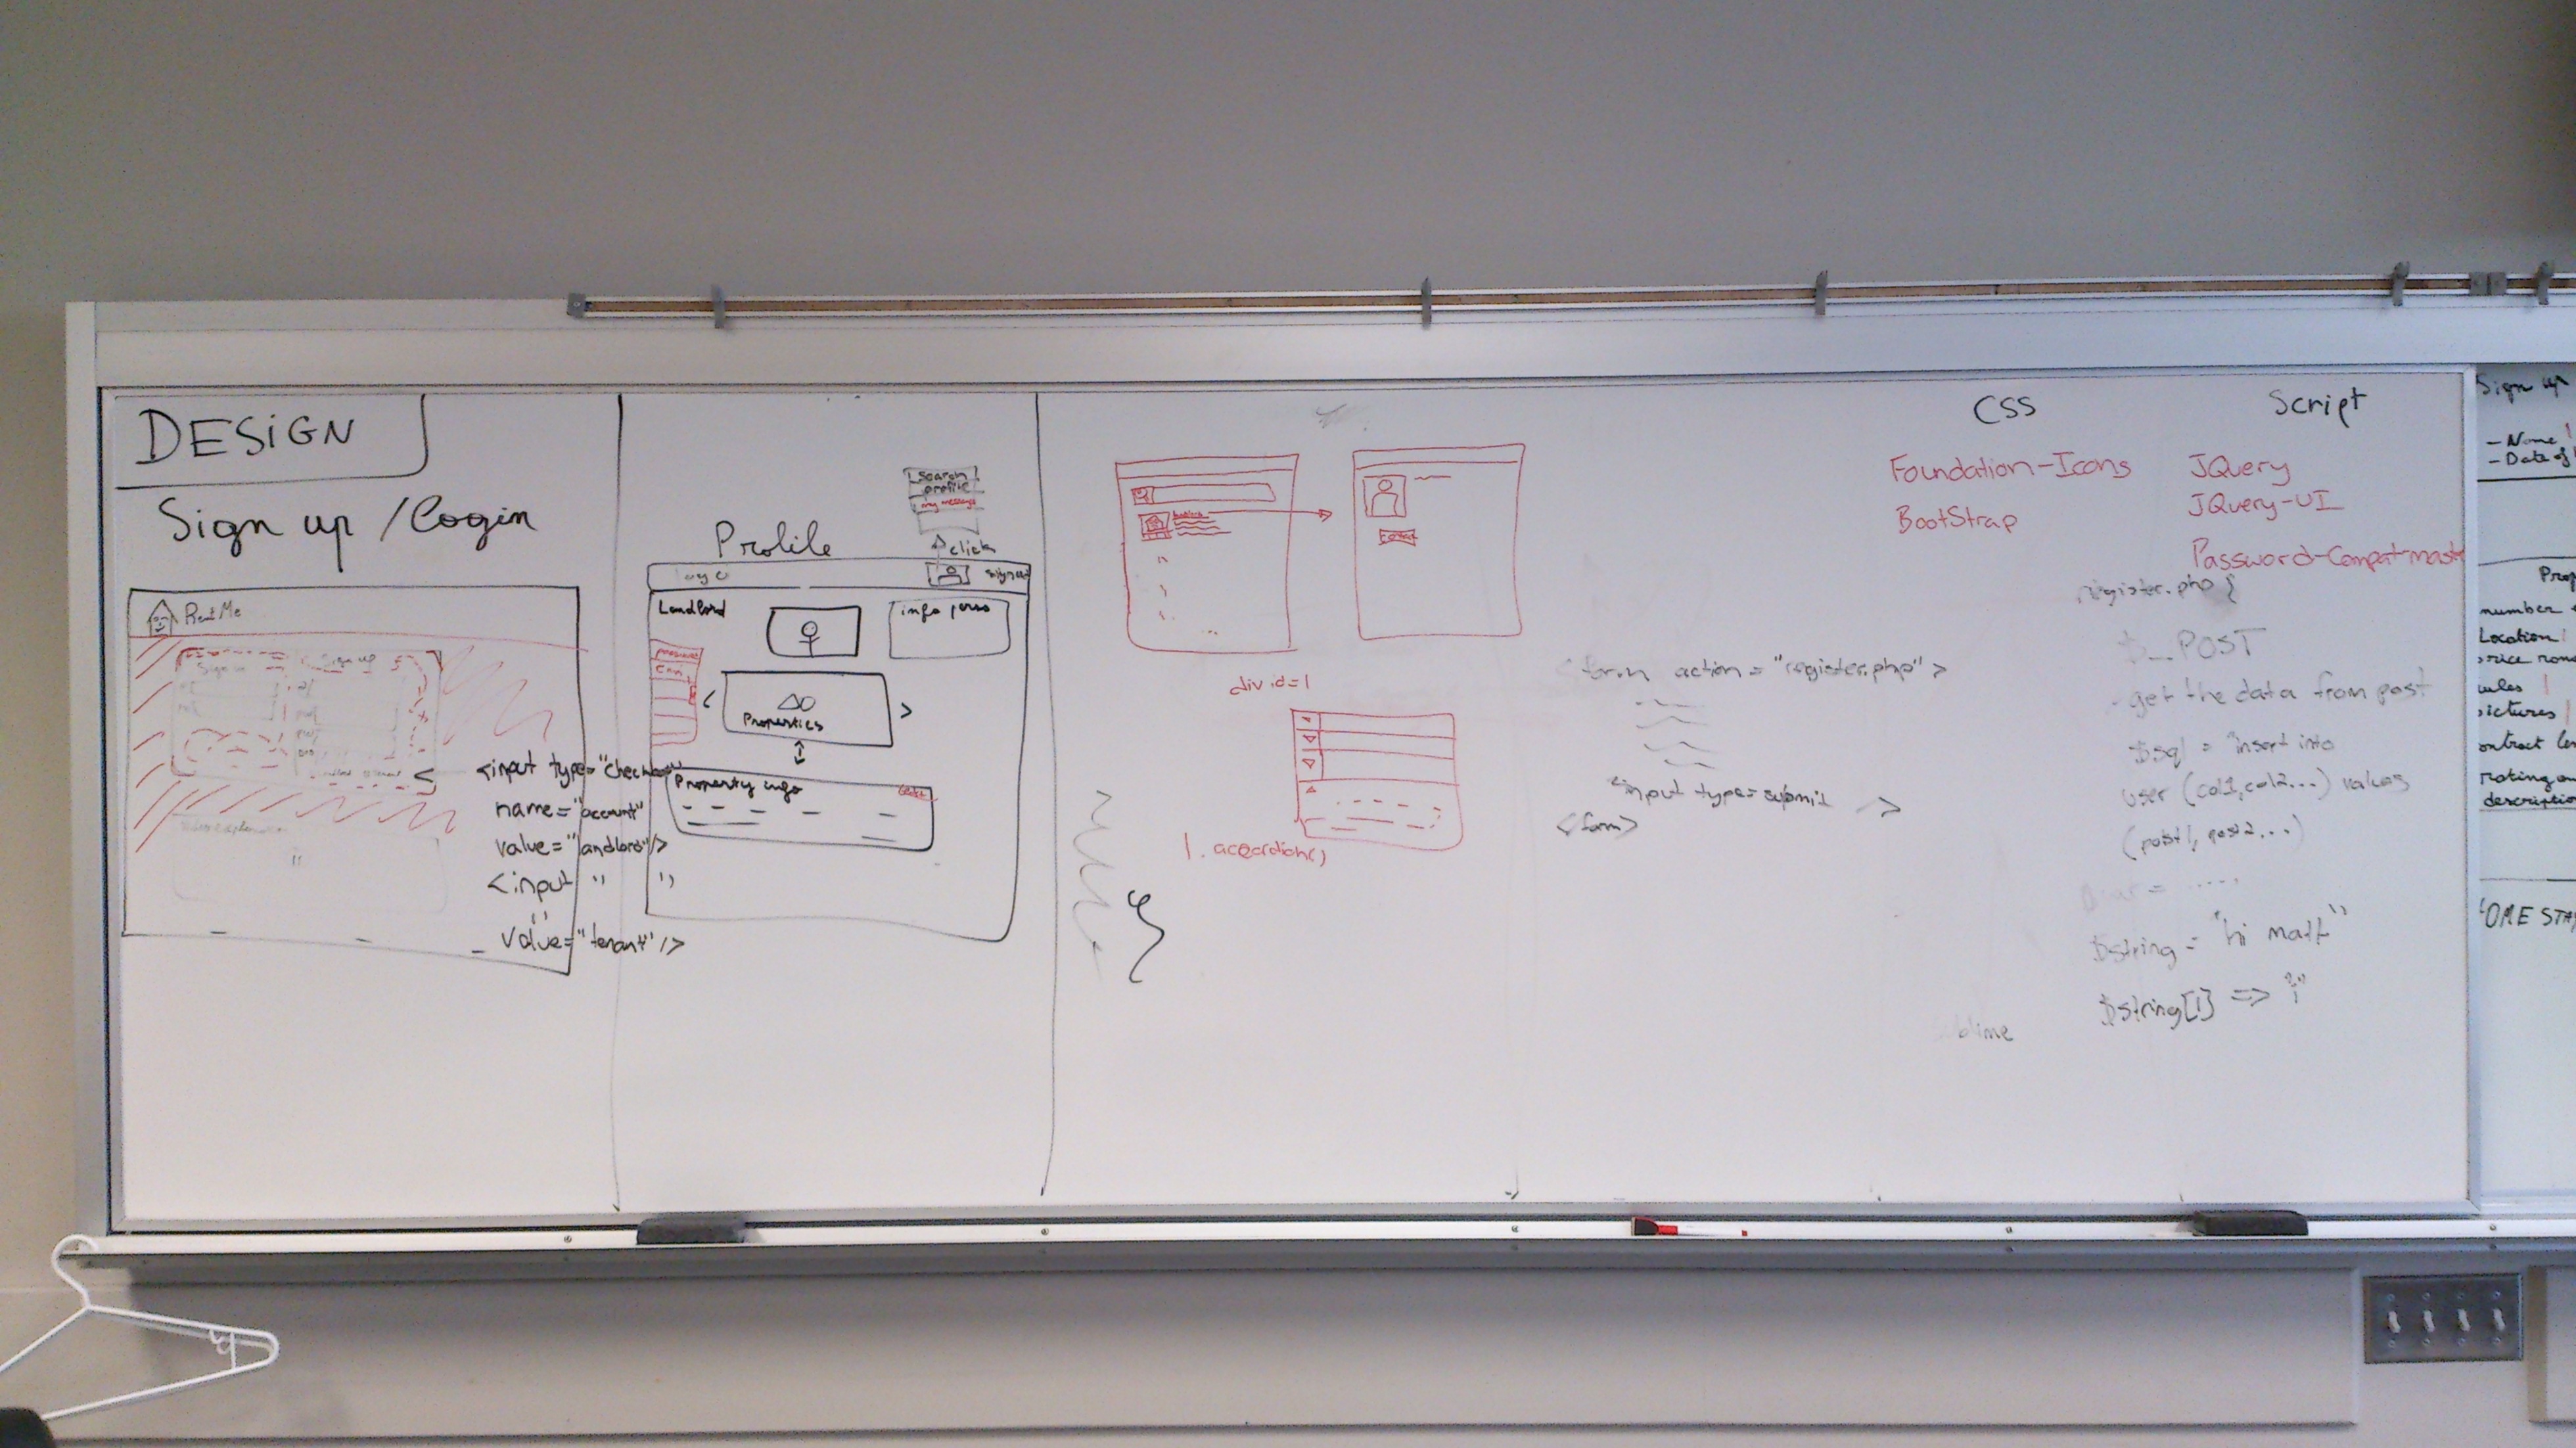 DESIGN
Sign up / Login
Rent Me
Sign in
Sign up
<input type="checkbox"
name="account"
value="landlord"/>
<input " "
value="tenant"/>
Search
profile
my message
click
Profile
logo
Landlord
info perso
Properties
Property info
div id=1
1. accordion()
<form action="register.php">
<input type=submit >
<form>
CSS
Foundation-Icons
BootStrap
Script
JQuery
JQuery-UI
Password-Compat-mast
register.php {
$_POST
- get the data from post
$sql = "insert into
user (col1, col2...) values
(post1, post2, ...)
$string = "hi matt"
$string[1] => "i"
blime
Sign up
- Name
- Date of
Prop
number
Location
rice
ules
ictures
ontract
rating
description
OME STA